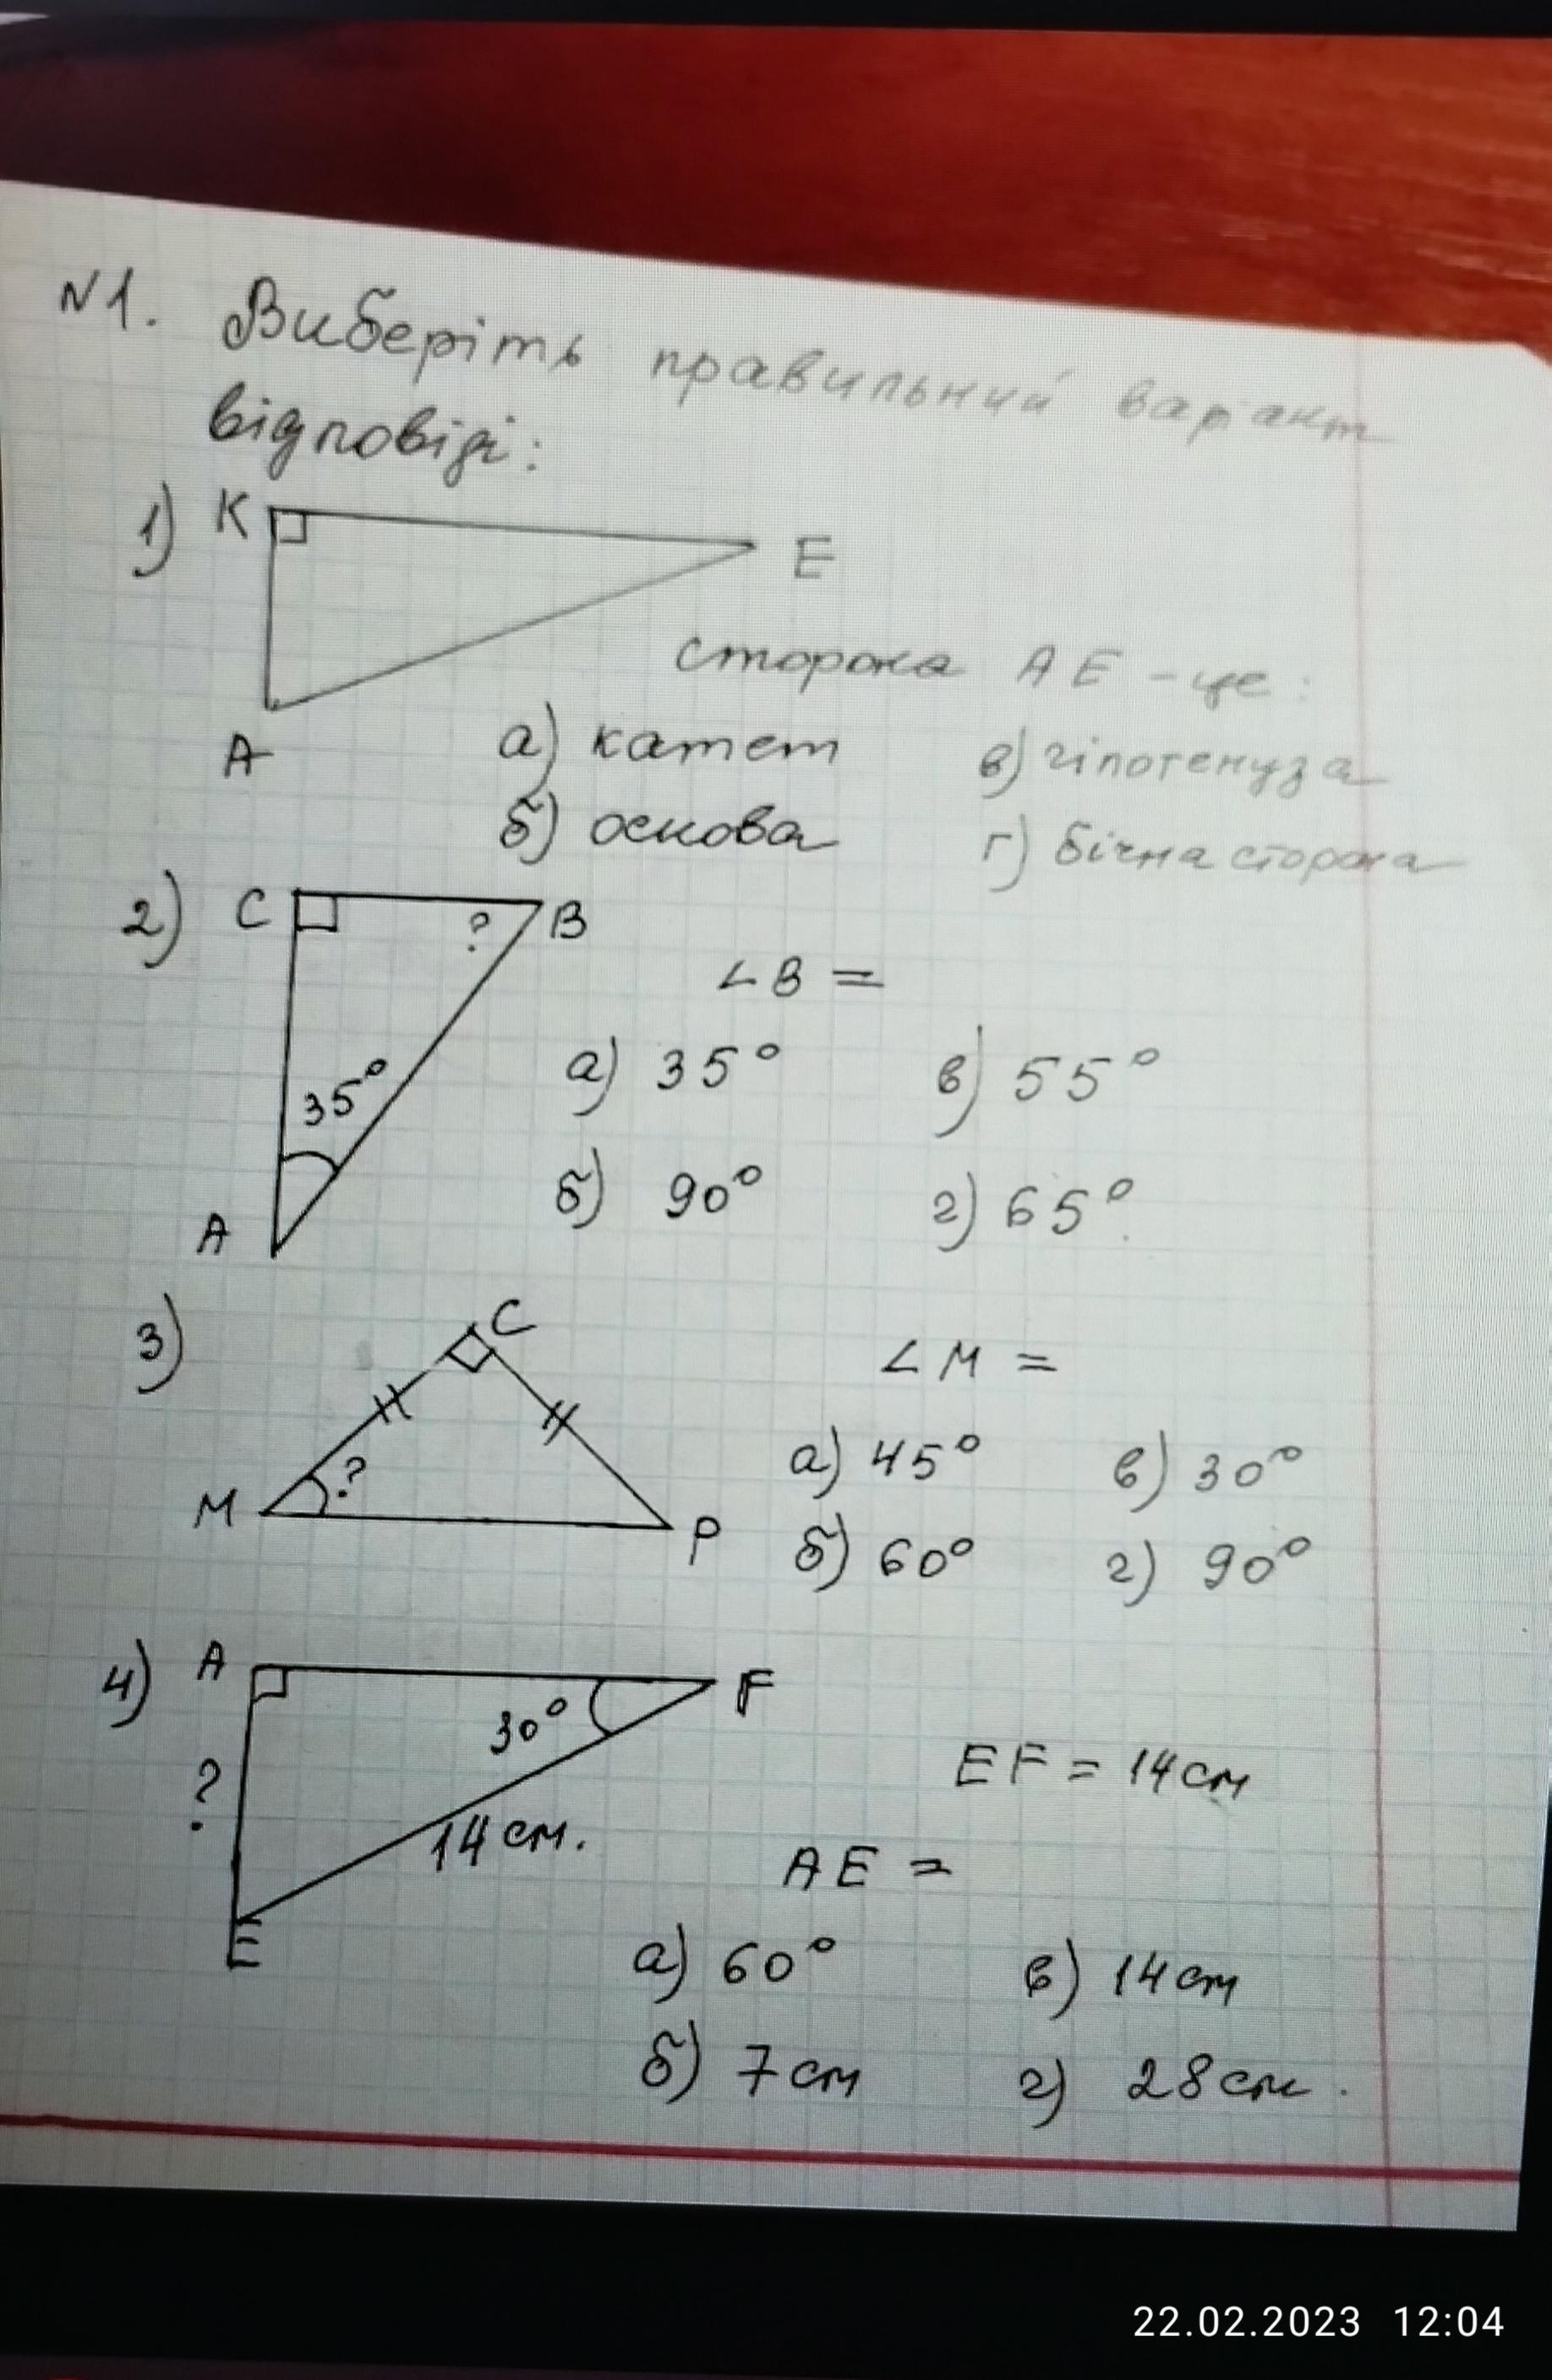 №1. Виберіть правильний варіант
відповіді:
1) K
E
A
сторона AE - це:
а) катет в) гіпотенуза
б) основа г) бічна сторона
2) C ? B
∠B =
35°
A
а) 35° в) 55°
б) 90° г) 65°
3) C
∠M =
M ? P
а) 45° в) 30°
б) 60° г) 90°
4) A F
30°
?
14 см.
E
EF = 14 см
AE =
а) 60° в) 14 см
б) 7 см г) 28 см.
22.02.2023 12:04